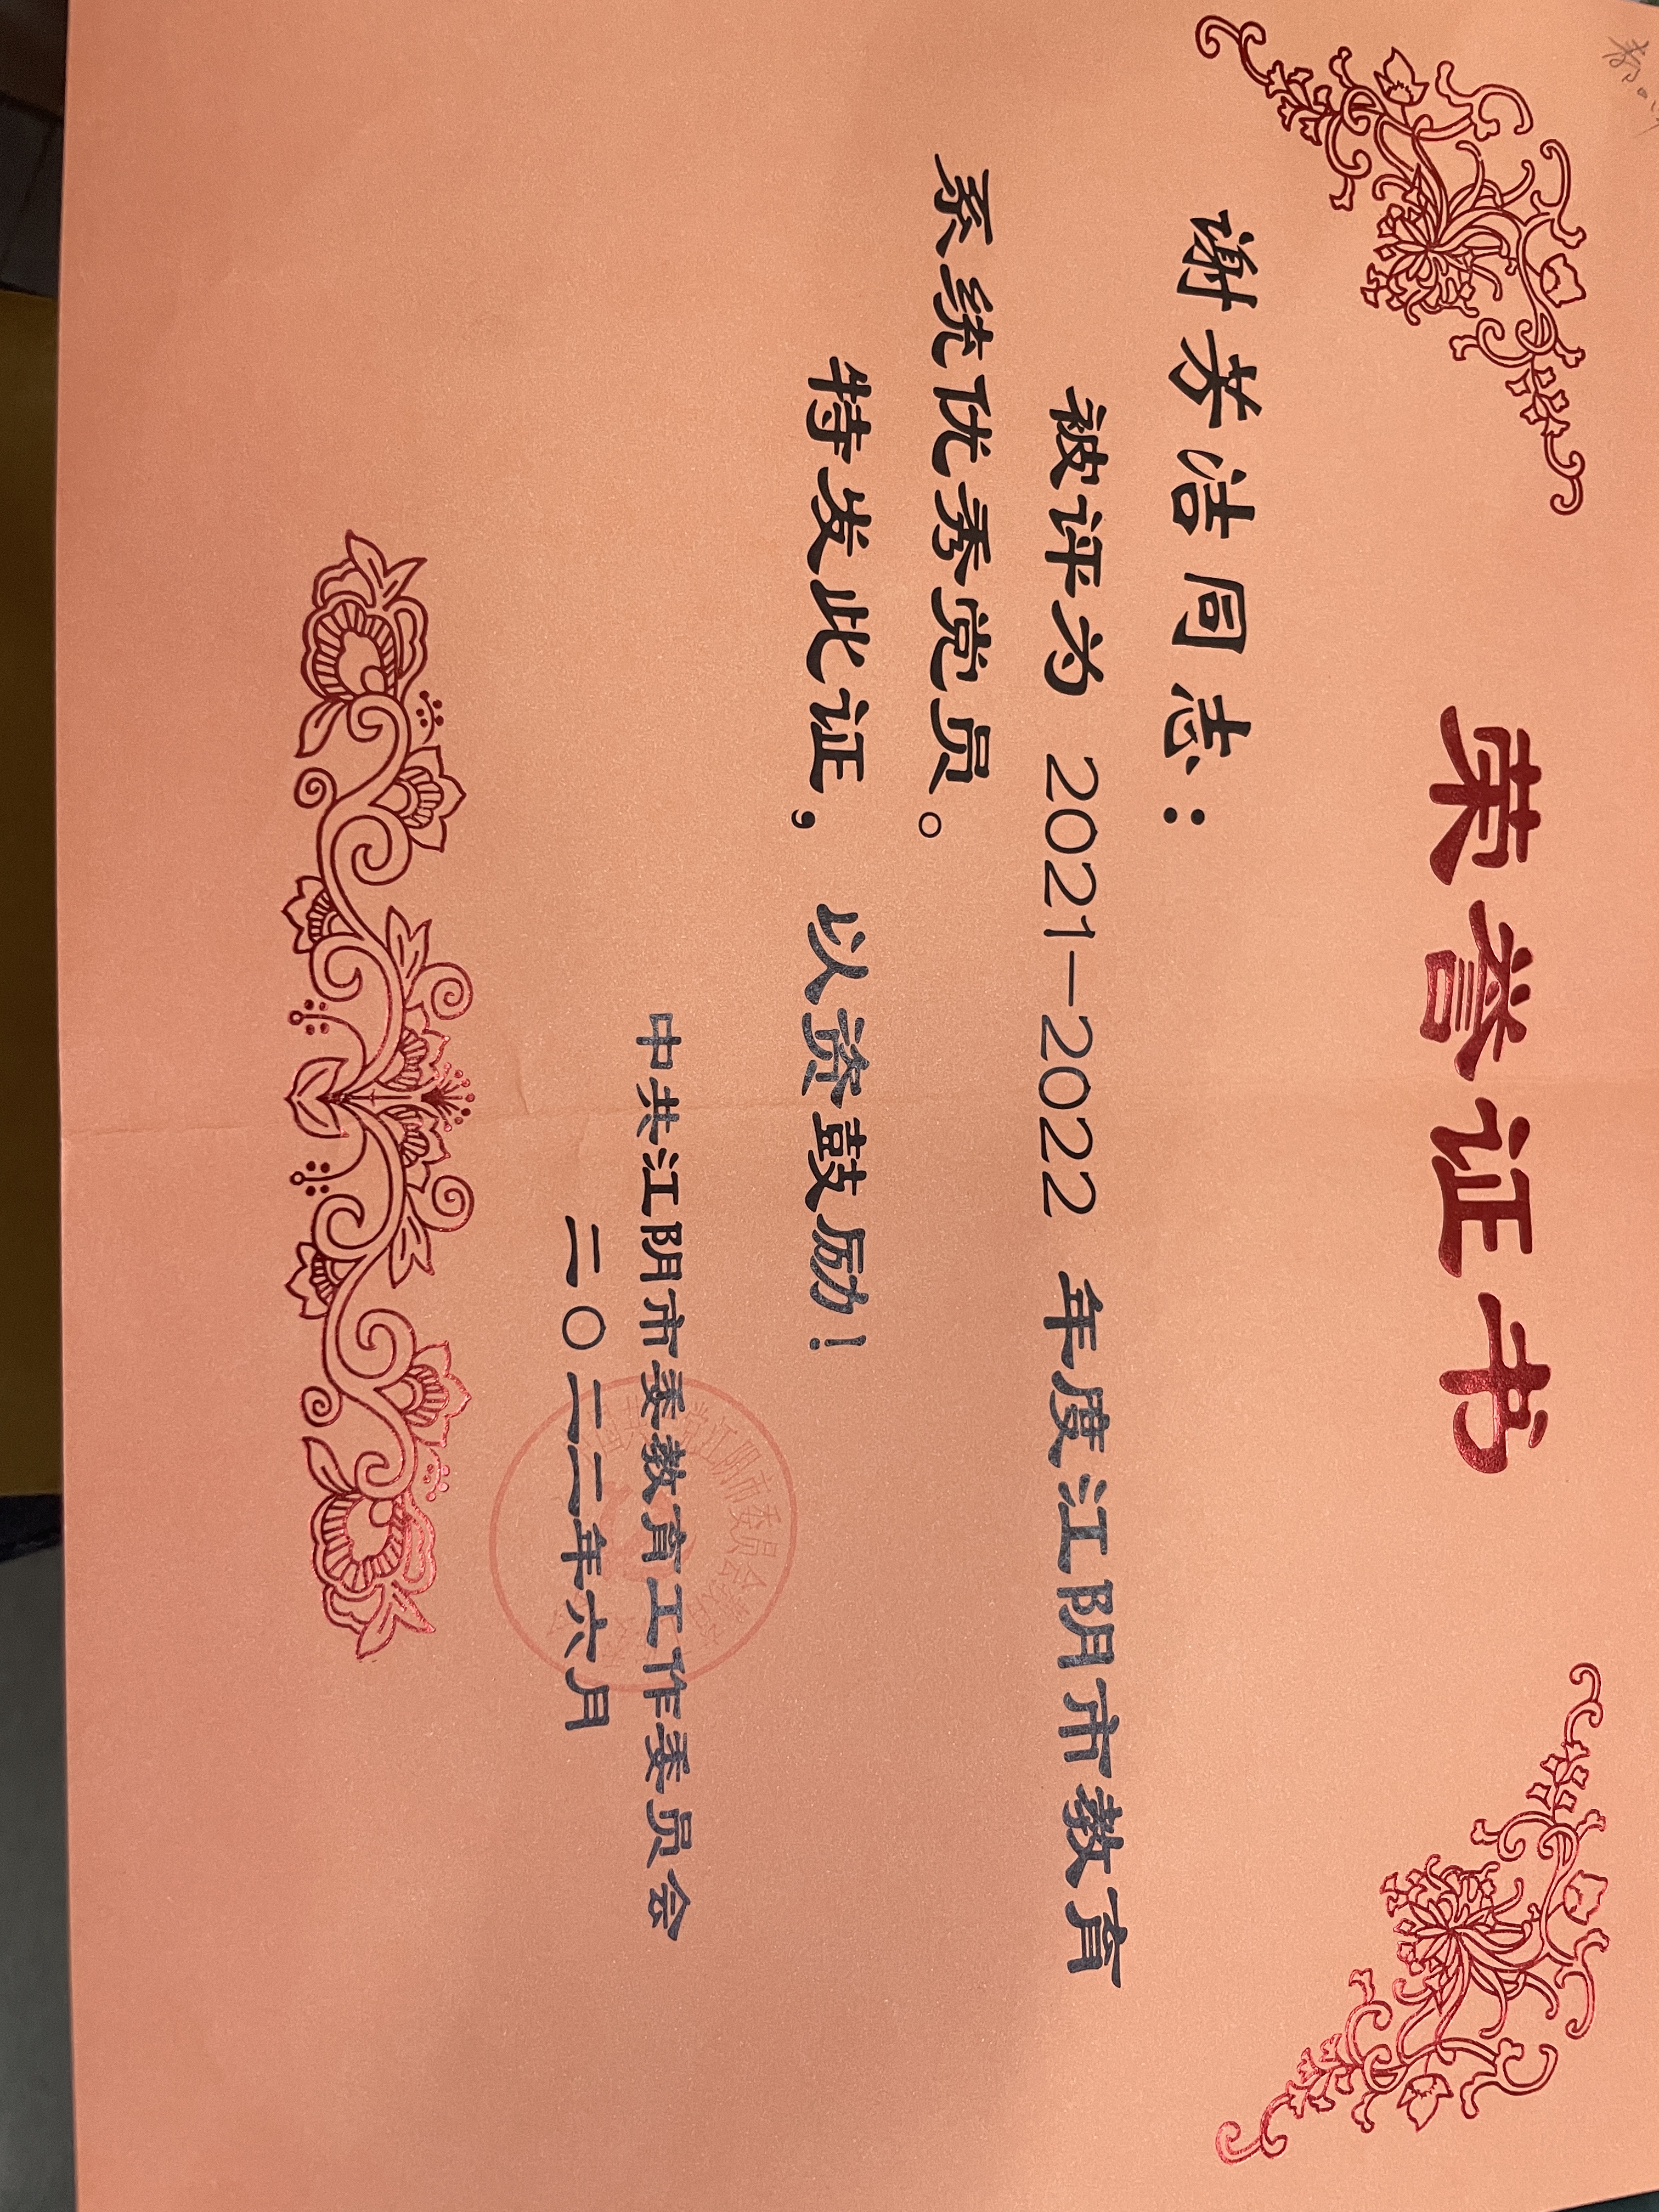 荣誉证书
谢芳洁同志：
被评为 2021—2022 年度江阴市教育
系统优秀党员。
特发此证，以资鼓励！
中共江阴市委教育工作委员会
二〇二二年六月